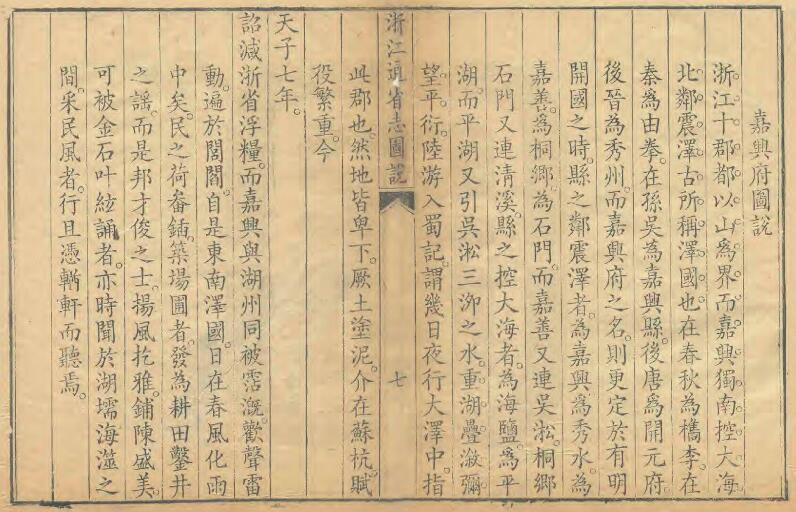 嘉興府圖說
浙江十郡都以山爲界而嘉興獨南控大海
北鄰震澤古所稱澤國也在春秋為檇李在
秦爲由拳在孫吳爲嘉興縣後唐爲開元府
後晉為秀州而嘉興府之名則更定於有明
開國之時縣之鄰震澤者為嘉興爲秀水為
嘉善為桐鄉為石門而嘉善又連吳淞桐鄉
石門又連清溪縣之控大海者為海鹽爲平
湖而平湖又引吳淞三泖之水重湖疊漵彌
望平衍陸游入蜀記謂幾日夜行大澤中指
浙江通省志圖說
七
此郡也然地皆卑下厥土塗泥介在蘇杭賦
役繁重今
天子七年
詔減浙省浮糧而嘉興與湖州同被霑溉歡聲雷
動遍於閭閻自是東南澤國日在春風化雨
中矣民之荷畚鍤築場圃者發為耕田鑿井
之謠而是邦才俊之士揚風扢雅鋪陳盛美
可被金石叶絃誦者亦時聞於湖壖海澨之
間采民風者行且憑輶軒而聽焉